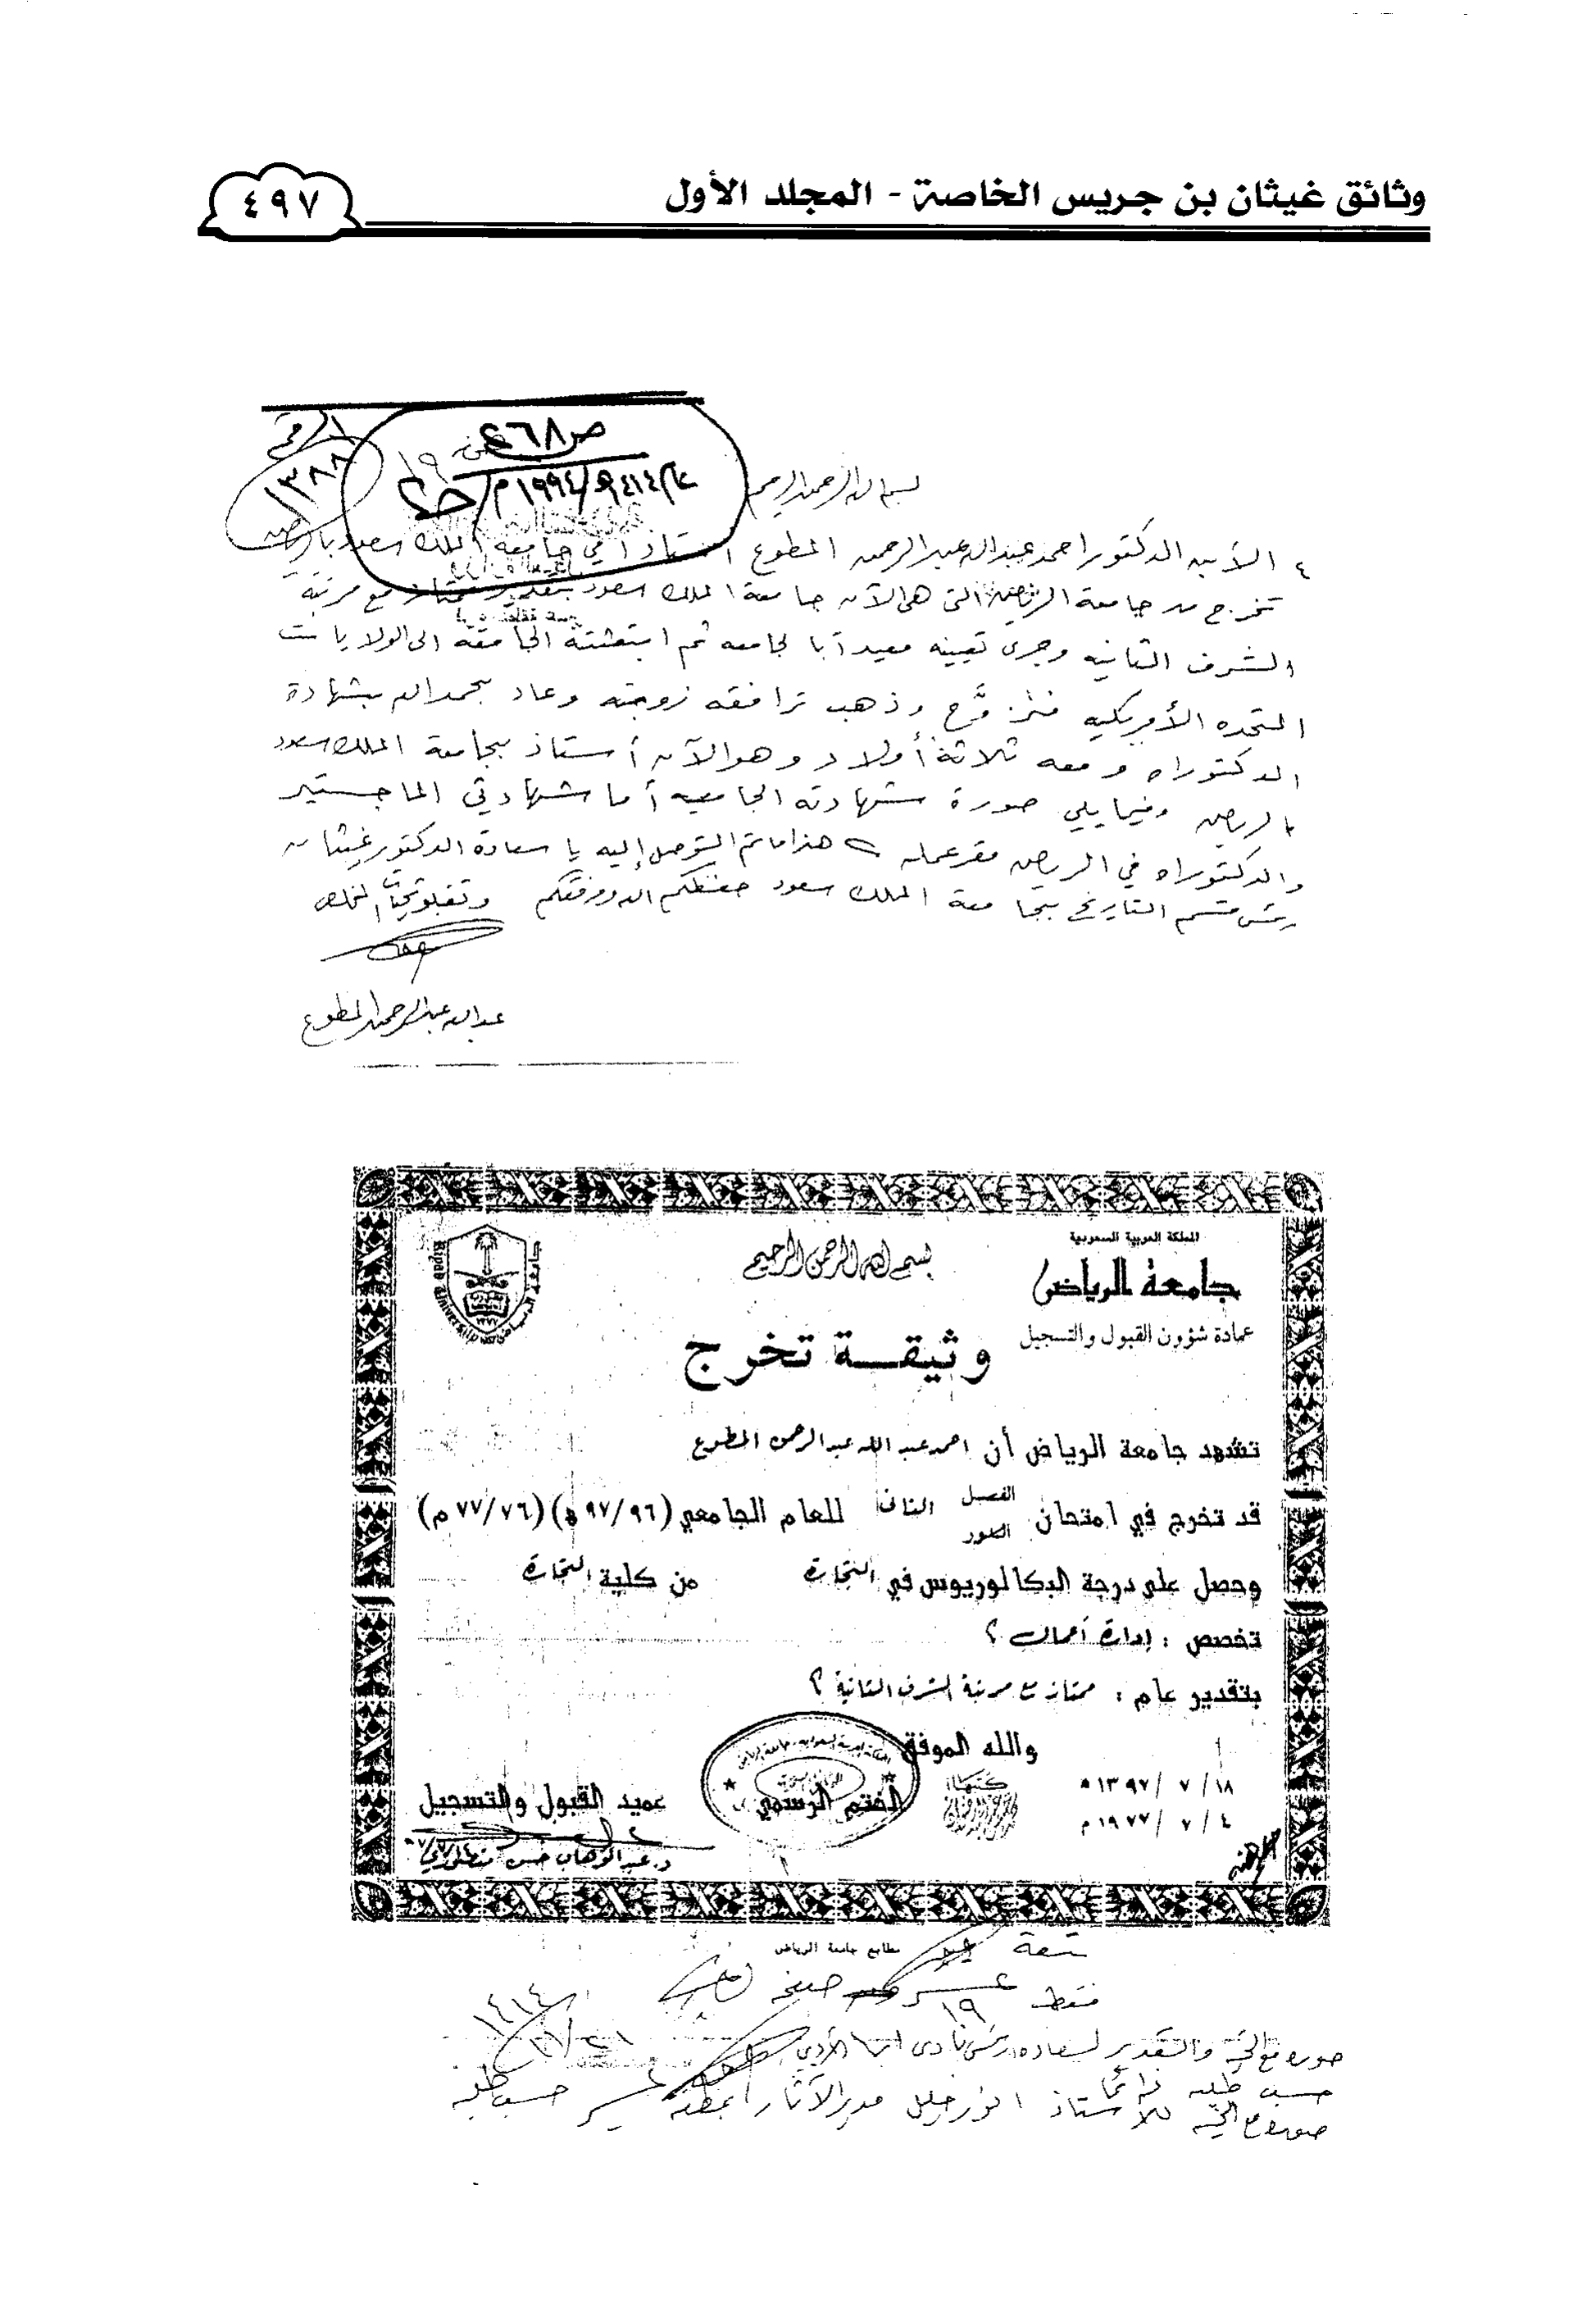 وثائق غيثان بن جريس الخاصة - المجلد الأول
٤٩٧
الرقم
١٣٨٨
ص ٤٦٨
١٤١٤هـ/١٩٩٤م
بسم الله الرحمن الرحيم
٤ الأبن الدكتور احمد عبدالله عبدالرحمن المطوع استاذا في جامعة الملك سعود بالرياض
تخرج من جامعة الرياض التى هى الآن جامعة الملك سعود بتقدير ممتاز مع مرتبة
الشرف الثانيه وجرى تعيينه معيداً بالجامعه ثم ابتعثته الجامعه الى الولايات
المتحده الأمريكيه فتزوَّج وذهب ترافقه زوجته وعاد بحمد الله بشهادة
الدكتوراه ومعه ثلاثة أولاد وهو الآن أستاذ بجامعة الملك سعود
بالرياض وفيما يلي صورة شهادته الجامعيه أما شهادتي الماجستير
والدكتوراه في الرياض مقر عمله هذا ما تم التوصل إليه يا سعادة الدكتور غيثان
رئيس قسم التاريخ بجامعة الملك سعود حفظكم الله ووفقكم وتقبلو تحيات المخلص
عبدالله عبدالرحمن المطوع
المملكة العربية السعودية
جامعة الرياض
عمادة شؤون القبول والتسجيل
بسم الله الرحمن الرحيم
جامعة الرياض
Riyad University
وثيقة تخرج
تشهد جامعة الرياض أن احمد عبد الله عبد الرحمن المطوع
قد تخرج في امتحان الفصل الثانى للعام الجامعي (٩٧/٩٦ هـ) (٧٧/٧٦ م)
الدور
وحصل على درجة البكالوريوس في التجارة من كلية التجارة
تخصص : إدارة أعمال
بتقدير عام : ممتاز مع مرتبة الشرف الثانية
والله الموفق
١٨ / ٧ / ١٣٩٧ هـ
٤ / ٧ / ١٩٧٧ م
كتبها
الختم الرسمي
عميد القبول والتسجيل
د. عبدالوهاب حسن منظوري
مطابع جامعة الرياض
تسعة
فقط ١٩ عشر صفحة
١٤١٤
صوره مع التحية والتقدير لسعادة رئيس نادي ابها الأدبي
حسب طلبه
صوره مع التحيه للأستاذ انور خليل مدير الآثار بمنطقة عسير حسب طلبه